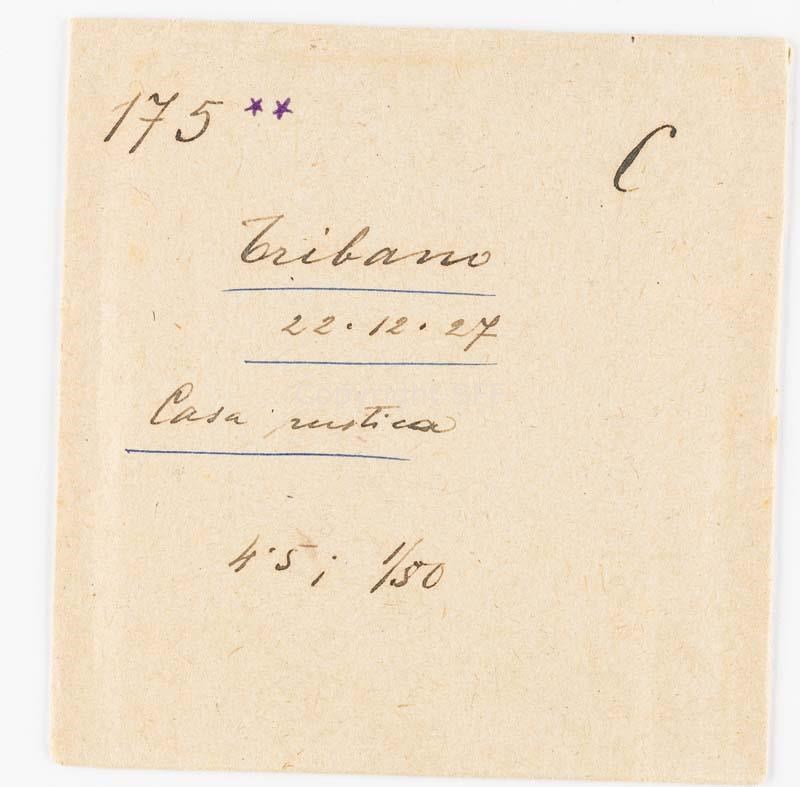 175 **
C
Tribano
22·12·27
Casa rustica
4·5; 1/50